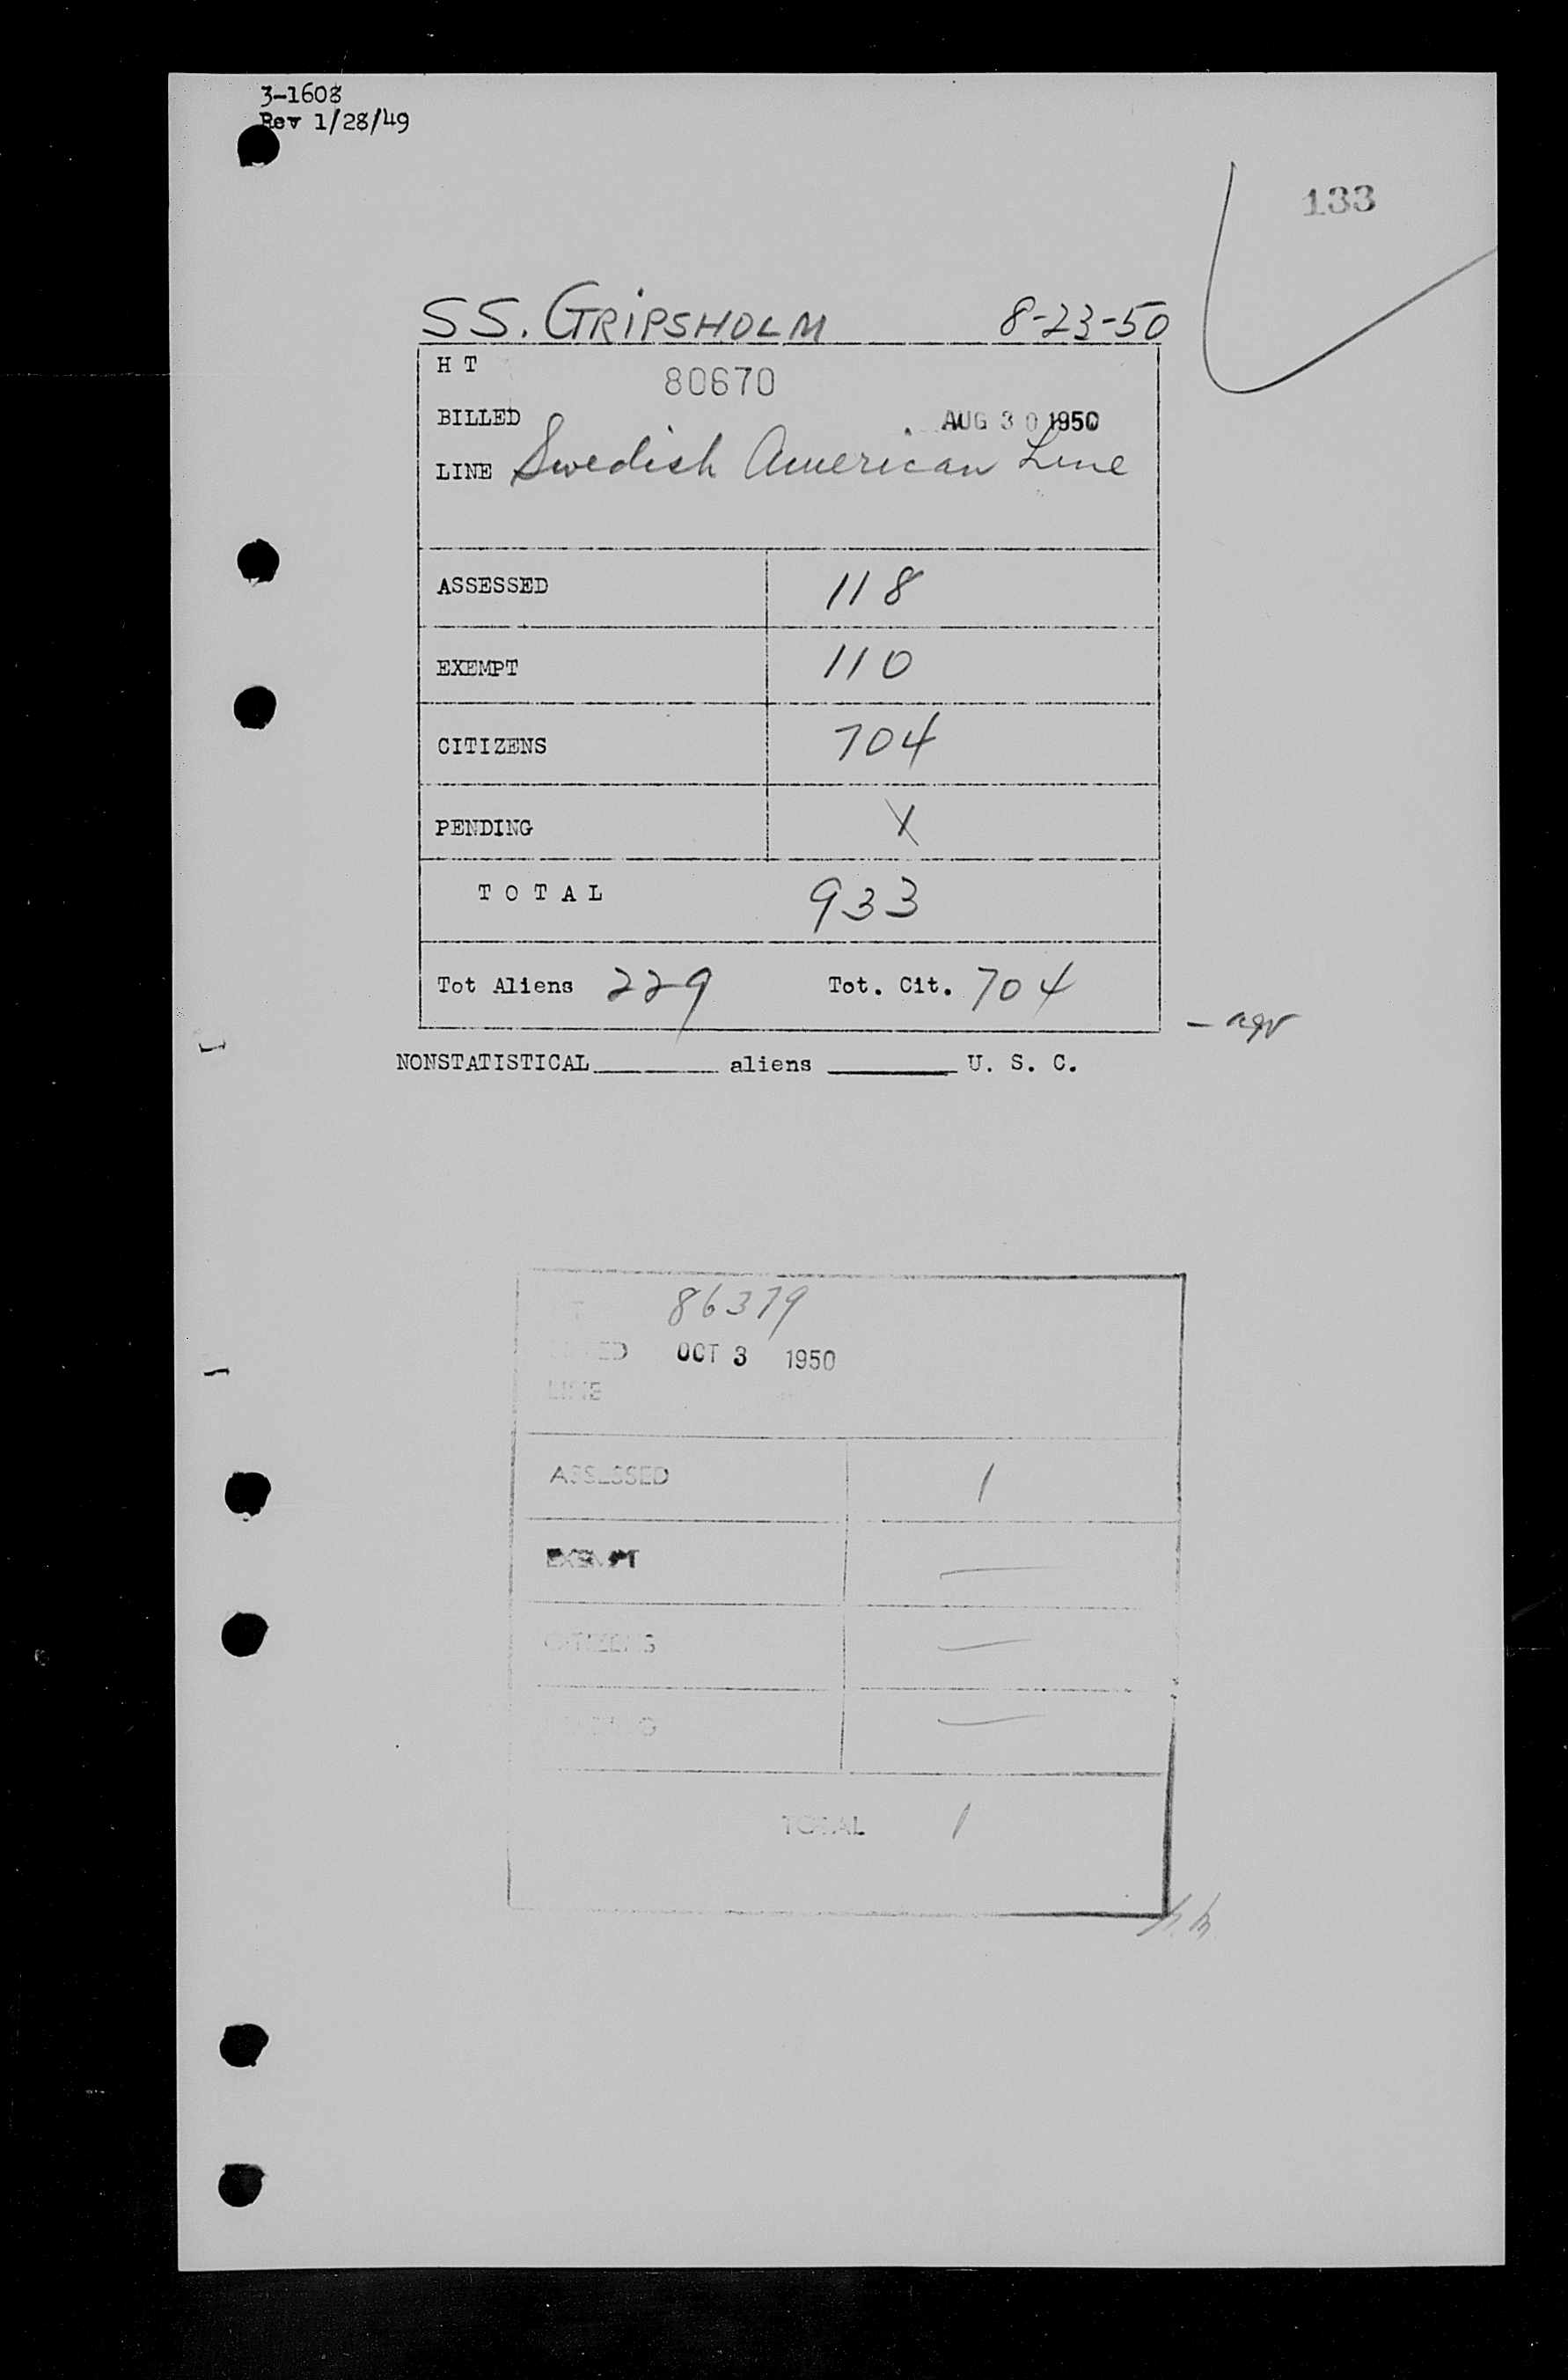 3-1608
Rev 1/28/49
133
SS. GRIPSHOLM 8-23-50
H T 80670
BILLED AUG 30 1950
LINE Swedish American Line
ASSESSED 118
EXEMPT 110
CITIZENS 704
PENDING X
TOTAL 933
Tot Aliens 229 Tot. Cit. 704
NONSTATISTICAL aliens U. S. C.
86379
OCT 3 1950
LINE
ASSESSED 1
EXEMPT —
CITIZENS —
PENDING —
TOTAL 1